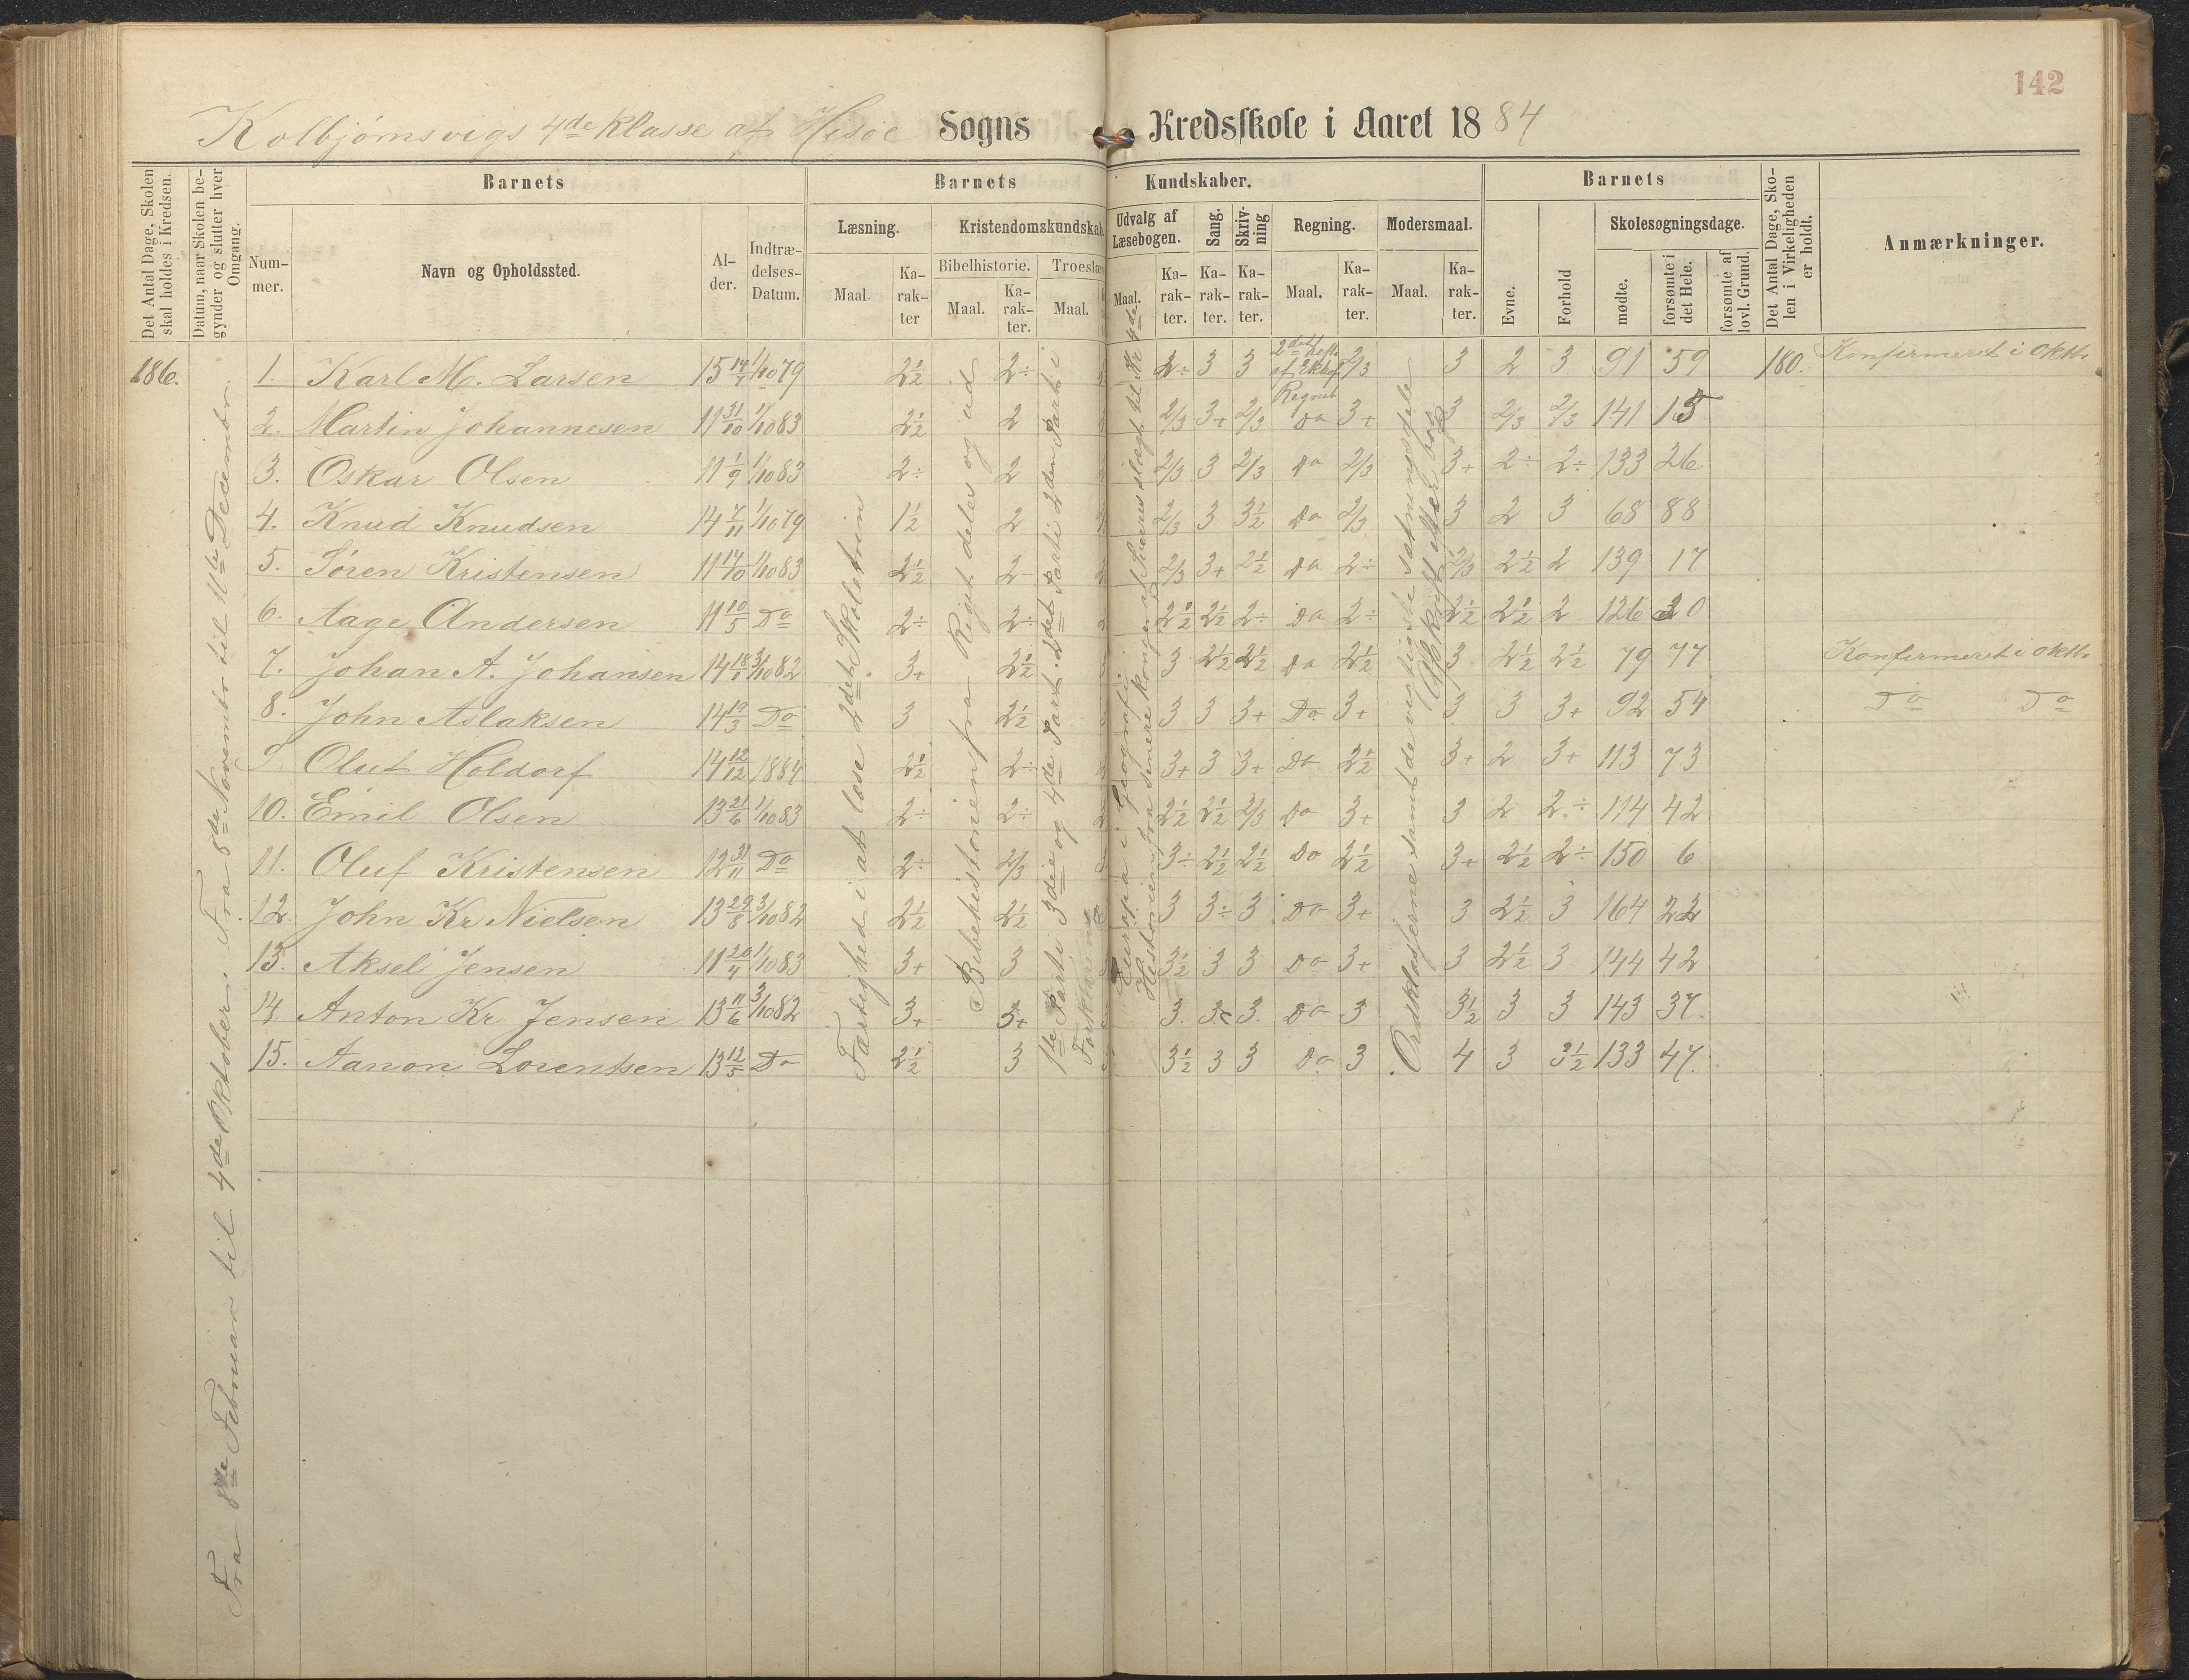 142
Kolbjørnsvigs 4de Klasse af Hisøe Sogns Kredsskole i Aaret 1884
Det Antal Dage, Skolen skal holdes i Kredsen.
Datum, naar Skolen begynder og slutter hver Omgang.
Barnets
Barnets Kundskaber.
Barnets
Det Antal Dage, Skolen i Virkeligheden er holdt.
Anmærkninger.
Nummer.
Navn og Opholdssted.
Alder.
Indtrædelses-Datum.
Læsning.
Kristendomskundskab
Udvalg af Læsebogen.
Sang.
Skrivning
Regning.
Modersmaal.
Evne.
Forhold
Skolesøgningsdage.
Bibelhistorie.
Troeslær
mødte.
forsømte i det Hele.
forsømte af lovl. Grund.
Maal. Karakter Maal. Karakter. Maal. Maal. Karakter. Karakter. Karakter. Maal. Karakter. Maal. Karakter.
186.
Fra 8de Februar til 4de Oktober. Fra 6de November til 11te December.
Færdighed i at læse 2det Skoletrin
Bibelhistorien fra Riget deles og ud
1ste Parti 3die og 4de Part. 2det Parti 2den Part i Forklaringen
Europa i Geografi.
Historien fra senere konger af Sverres slægt til Kr 4de
2det Hefte af Ekhof Regneb
Ordklasserne samt de vigtigste sætningsdele
Afskrift efter bog
1. Karl M. Larsen 15 14/7 1/10 79 2½ 2÷ 2÷ 3 3 2/3 3 2 3 91 59 180. Konfirmeret i Oktb.
2. Martin Johannesen 11 31/10 1/10 83 2½ 2 2/3 3+ 2/3 Do 3+ 3 2/3 2/3 141 15
3. Oskar Olsen 11 1/9 1/10 83 2÷ 2 2/3 3 2/3 Do 2/3 3+ 2÷ 2÷ 133 26
4. Knud Knudsen 14 7/11 1/10 79 1½ 2 2/3 3 3½ Do 2/3 3 2 3 68 88
5. Søren Kristensen 11 14/10 1/10 83 2½ 2- 2/3 3+ 2½ Do 2÷ 2/3 2½ 2 139 17
6. Aage Andersen 11 10/5 Do 2÷ 2÷ 2½ 2½ 2÷ Do 2÷ 2½ 2½ 2 126 30
7. Johan A. Johansen 14 18/8 3/10 82 3+ 2½ 3 2½ 2½ Do 2½ 3 2½ 2½ 79 77 Konfirmeret i Oktb.
8. John Aslaksen 14 19/3 Do 3 2½ 3 3 3+ Do 3+ 3 3 3+ 92 54 Do Do
9 Oluf Holdorf 14 12/12 1884 2½ 2÷ 3+ 3 3+ Do 2½ 3+ 2 3+ 113 73
10. Emil Olsen 13 21/6 1/10 83 2÷ 2÷ 2½ 2½ 2/3 Do 3+ 3 2 2÷ 114 42
11. Oluf Kristensen 12 31/11 Do 2÷ 2/3 3÷ 2½ 2½ Do 2½ 3+ 2½ 2÷ 150 6
12. John Kr Nielsen 13 29/8 3/10 82 2½ 2½ 3 3÷ 3 Do 3+ 3 2½ 3 164 22
13. Aksel Jensen 11 20/4 1/10 83 3+ 3 3½ 3 3 Do 3+ 3 2½ 3 144 42
14. Anton Kr. Jensen 13 11/6 3/10 82 3+ 3+ 3. 3. 3. Do 3 3½ 3 3 143 37.
15. Aanon Lorentsen 13 12/5 Do 2½ 3 3½ 3 3 Do 3 4 3 3½ 133 47.